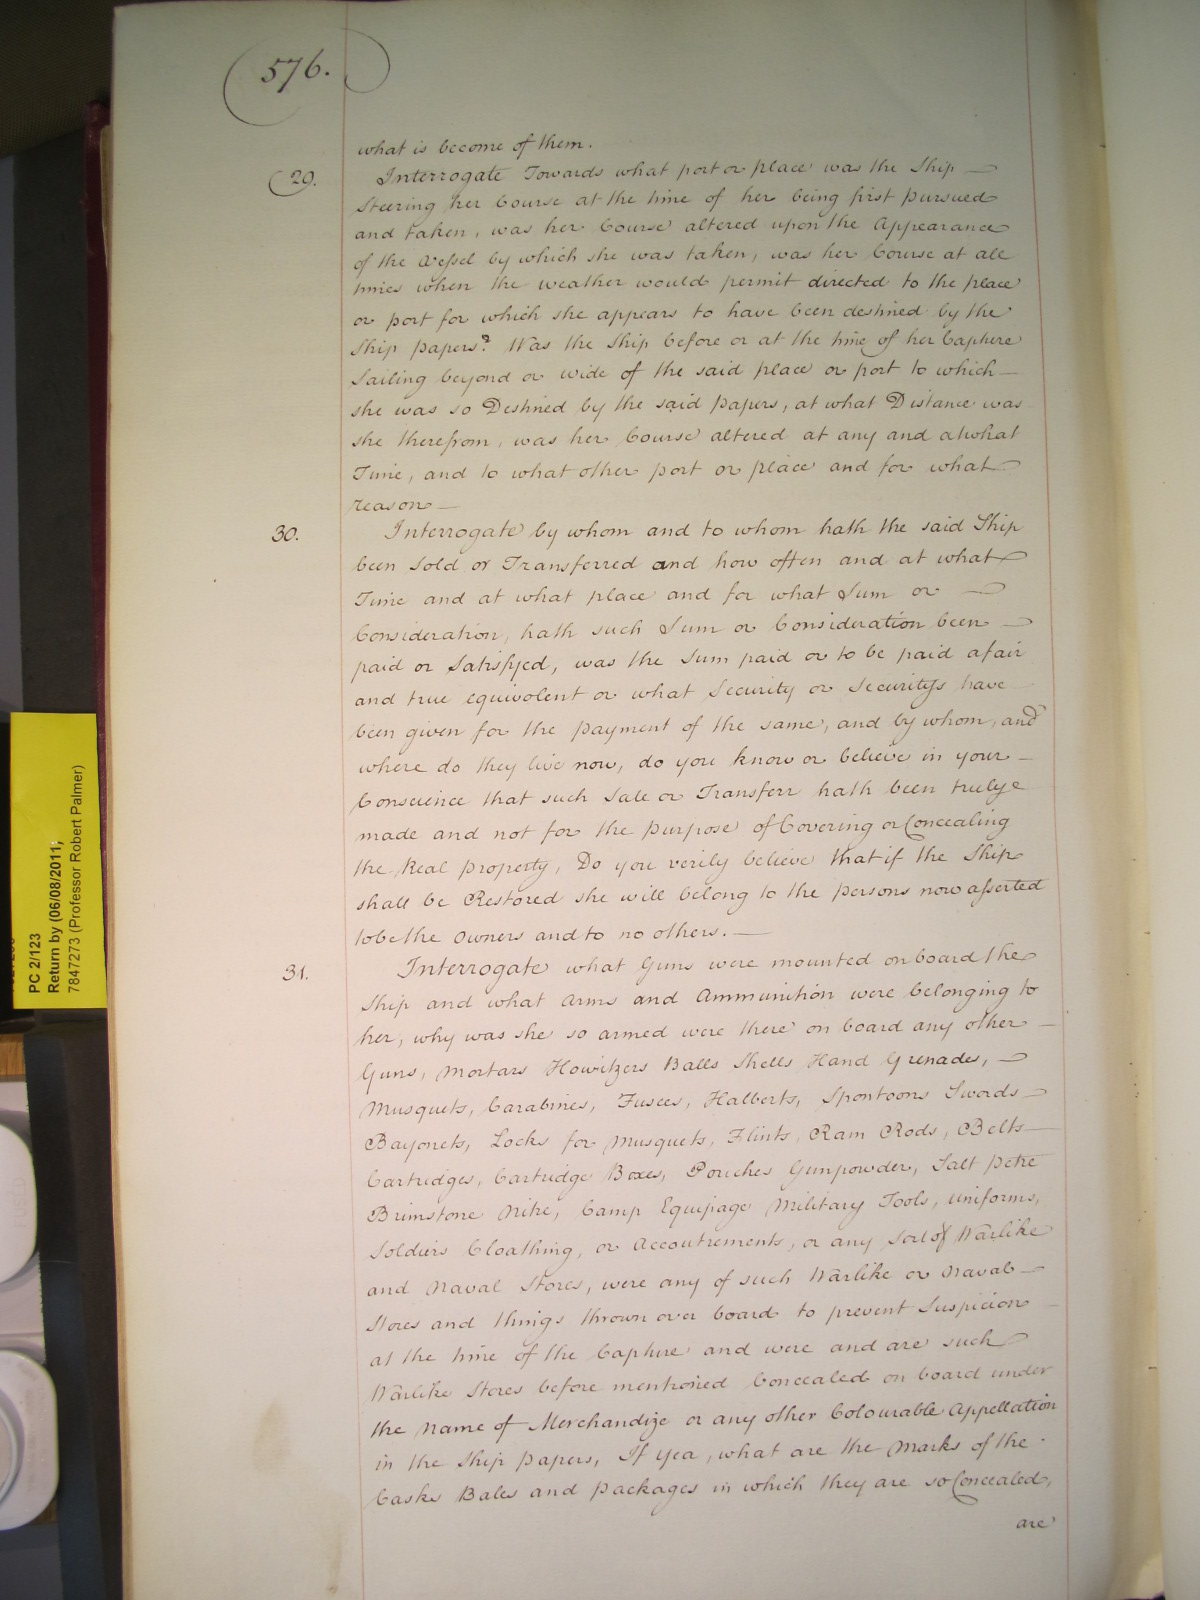 576.
what is become of them.
29. Interrogate Towards what port or place was the Ship
Steering her Course at the time of her being first pursued
and taken, was her Course altered upon the Appearance
of the Vessel by which she was taken, was her Course at all
times when the weather would permit directed to the place
or port for which she appears to have been destined by the
Ship papers? Was the Ship before or at the time of her Capture
Sailing beyond or wide of the said place or port to which
she was so Destined by the said papers, at what Distance was
she therefrom, was her Course altered at any and at what
Time, and to what other port or place and for what
reason
30. Interrogate by whom and to whom hath the said Ship
been Sold or Transferred and how often and at what
Time and at what place and for what Sum or
Consideration, hath such Sum or Consideration been
paid or Satisfyed, was the Sum paid or to be paid a fair
and true equivolent or what Security or Securitys have
been given for the payment of the same, and by whom, and
where do they live now, do you know or believe in your
Conscience that such Sale or Transferr hath been truly
made and not for the purpose of Covering or Concealing
the Real property, Do you verily believe that if the Ship
shall be Restored she will belong to the persons now asserted
to be the Owners and to no others.
31. Interrogate what Guns were mounted on board the
Ship and what Arms and Ammunition were belonging to
her, why was she so armed were there on board any other
Guns, Mortars Howitzers Balls Shells Hand Grenades,
Musquets, Carabines, Fusees, Halberts, Spontoons Swords
Bayonets, Locks for Musquets, Flints, Ram Rods, Belts
Cartridges, Cartridge Boxes, Pouches Gunpowder, Salt Petre
Brimstone Nitre, Camp Equipage Military Tools, uniforms,
Soldiers Cloathing, or Accoutrements, or any Sort of Warlike
and Naval Stores, were any of such Warlike or Naval
Stores and things thrown over board to prevent Suspicion
at the time of the Capture and were and are such
Warlike Stores before mentioned Concealed on board under
the Name of Merchandize or any other Colourable Appellation
in the Ship papers, If yea, what are the Marks of the
Casks Bales and Packages in which they are so Concealed,
are
PC 2/123
Return by (06/08/2011;
7847273 (Professor Robert Palmer)